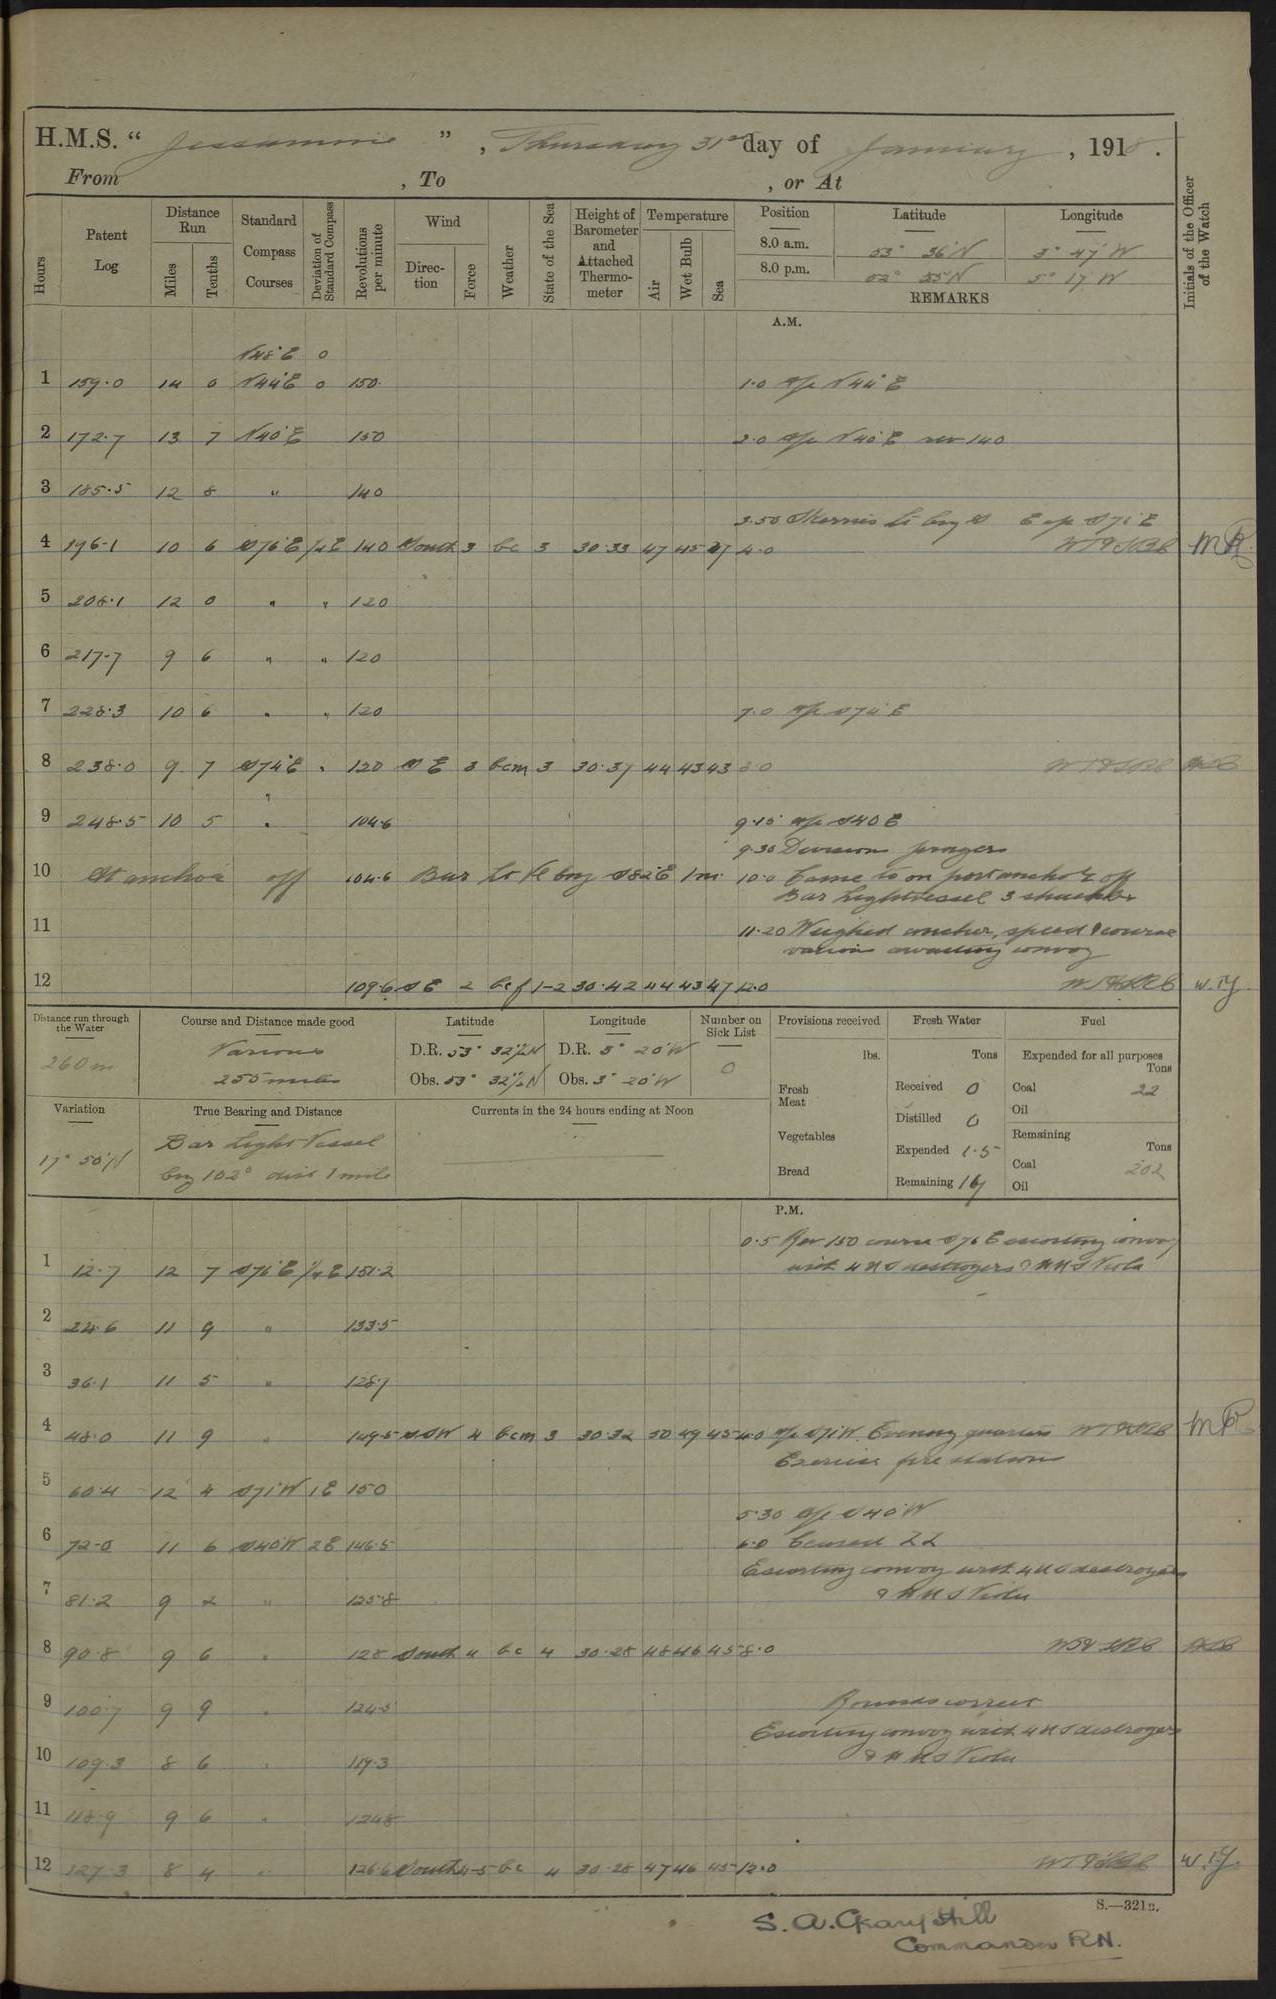 H.M.S. " Jessamine ", Thursday 31st day of January, 1918.
From , To , or At
Hours Patent Log Distance Run Miles Tenths Standard Compass Courses Deviation of Standard Compass Revolutions per minute Wind Direction Force Weather State of the Sea Height of Barometer and Attached Thermometer Temperature Air Wet Bulb Sea Position Latitude Longitude Initials of the Officer of the Watch
8.0 a.m. 53° 36' N 3° 47' W
8.0 p.m. 52° 55' N 5° 17' W
REMARKS
A.M.
N48°E 0
1 159.0 14 0 N44°E 0 150 1.0 a/c N44°E
2 172.7 13 7 N40°E 150 2.0 a/c N40°E rev 140
3 185.5 12 8 " 140
3.50 Skerries Lt brg S E a/c S76°E
4 196.1 10 6 S76°E 1/4E 140 South 3 bc 3 30.33 47 45 47 4.0
5 208.1 12 0 " " 120
6 217.7 9 6 " " 120
7 228.3 10 6 " " 120 7.0 a/c S74°E
8 238.0 9 7 S74°E " 120 SE 3 bcm 3 30.37 44 43 43 8.0
9 248.5 10 5 " 104.6 9.15 a/c S40E
9.30 Divisions prayers
10 At anchor off 104.6 Bar Lt Vl brg S82°E 1m. 10.0 Came to on port anchor off
Bar Lightvessel 3 shackles
11 11.20 Weighed anchor, speed & course
various awaiting convoy
12 109.6 SE 2 bcf 1-2 30.42 44 43 47 12.0 W.T.Y.
Distance run through the Water Course and Distance made good Latitude Longitude Number on Sick List Provisions received Fresh Water Fuel
260 m Various D.R. 53° 32 1/2 N D.R. 3° 20' W 0 lbs. Tons Expended for all purposes Tons
255 miles Obs. 53° 32 1/2 N Obs. 3° 20' W Fresh Meat Received 0 Coal 22
Oil
Variation True Bearing and Distance Currents in the 24 hours ending at Noon Distilled 0
17° 50' Bar Light Vessel Vegetables Expended 1.5 Remaining Tons
brg 102° dist 1 mile Bread Remaining Coal 202
Oil
P.M.
0.5 Rev 150 course S76E escorting convoy
1 12.7 12 7 S76°E 1/4E 151.2 with 4 US destroyers & HMS Viola
2 24.6 11 9 " 133.5
3 36.1 11 5 " 128.7
4 48.0 11 9 " 149.5 SSW 4 bcm 3 30.32 50 49 45 4.0 a/c S71W. Evening quarters
Exercise fire stations
5 60.4 12 4 S71°W 1E 150
5.30 a/c S40°W
6 72.0 11 6 S40°W 2E 146.5 6.0 Ceased ZZ
Escorting convoy with 4 US destroyers
7 81.2 9 2 " 125.8 & HMS Viola
8 90.8 9 6 " 128 South 4 bc 4 30.28 48 46 45 8.0
9 100.7 9 9 " 124.5 Rounds correct
Escorting convoy with 4 US destroyers
10 109.3 8 6 " 119.3 & HMS Viola
11 118.9 9 6 " 124.8
12 127.3 8 4 " 126.6 South 4-5 bc 4 30.28 47 46 45 12.0 W.T.Y.
S.—321B.
S. A. Geary Hill
Commander RN.